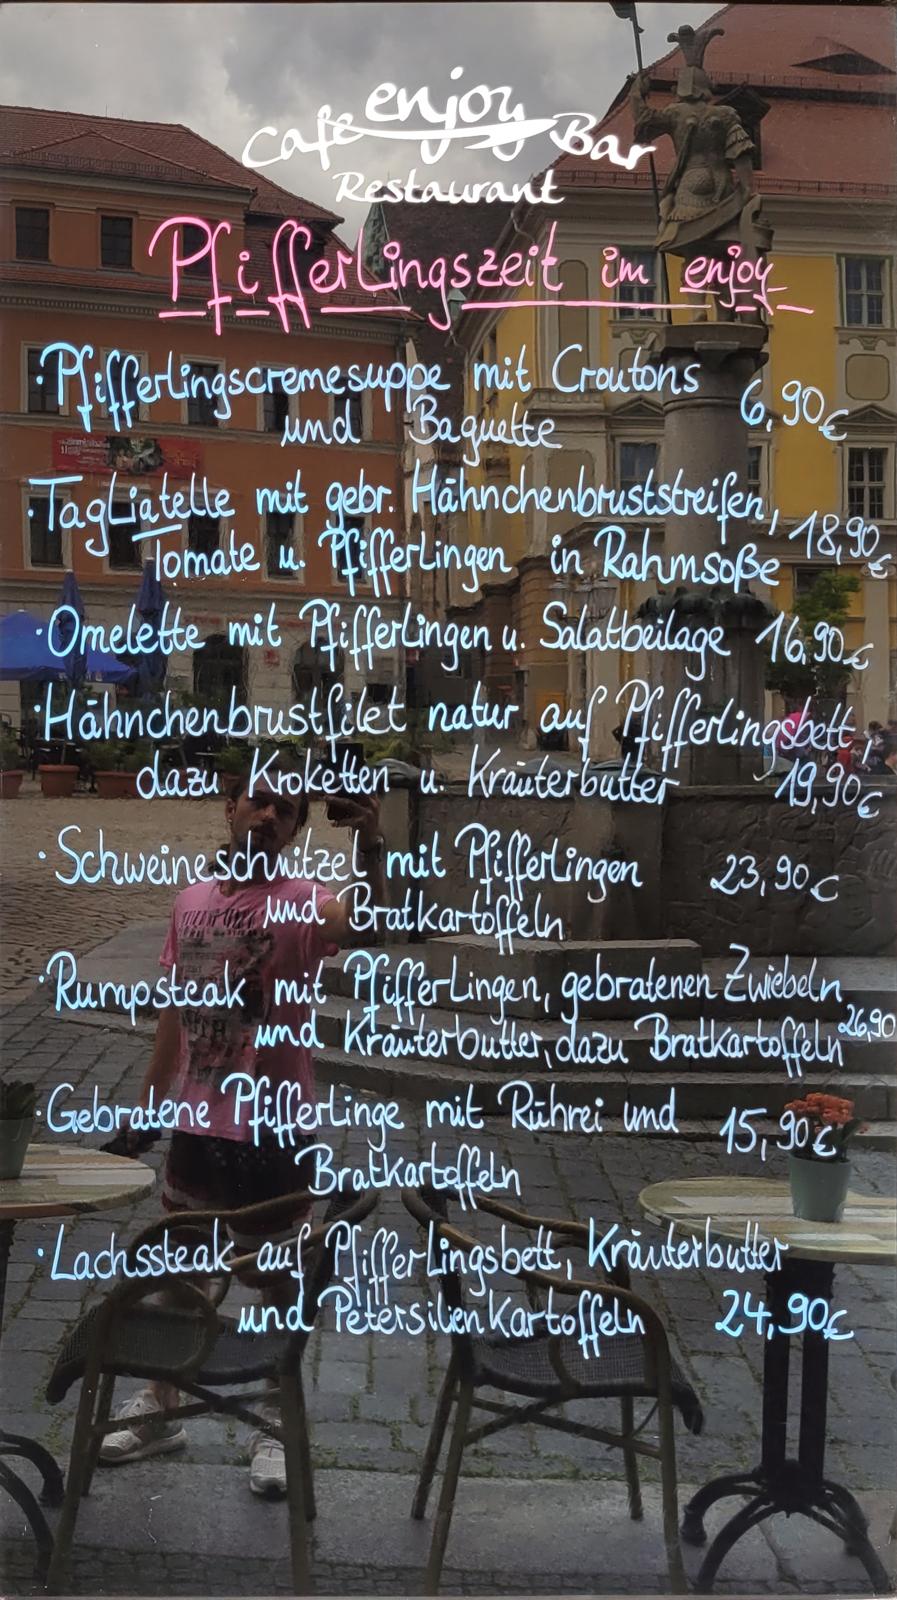 Cafe enjoy Bar
Restaurant
Pfifferlingszeit im enjoy
·Pfifferlingscremesuppe mit Croutons
und Baguette 6,90€
·Tagliatelle mit gebr. Hähnchenbruststreifen,
Tomate u. Pfifferlingen in Rahmsoße 18,90€
·Omelette mit Pfifferlingen u. Salatbeilage 16,90€
·Hähnchenbrustfilet natur auf Pfifferlingsbett,
dazu Kroketten u. Kräuterbutter 19,90€
·Schweineschnitzel mit Pfifferlingen 23,90€
und Bratkartoffeln
·Rumpsteak mit Pfifferlingen, gebratenen Zwiebeln
und Kräuterbutter, dazu Bratkartoffeln 26,90
·Gebratene Pfifferlinge mit Rührei und 15,90€
Bratkartoffeln
·Lachssteak auf Pfifferlingsbett, Kräuterbutter
und Petersilienkartoffeln 24,90€